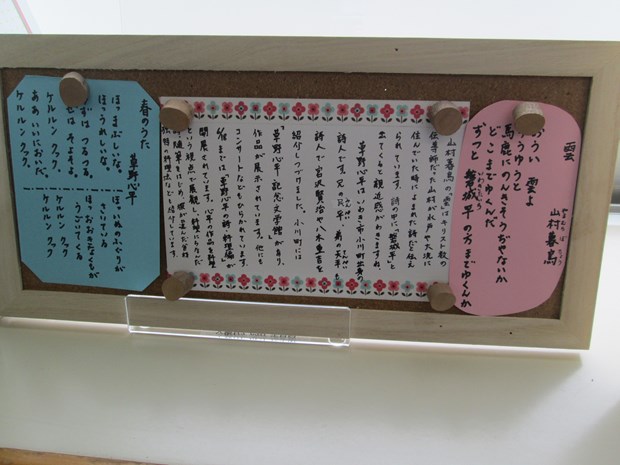 雲
山村暮鳥
やまむら ぼちょう
おうい 雲よ
ゆうゆうと
馬鹿にのんきそうぢゃないか
どこまでゆくんだ
ずっと 磐城平の方までゆくんか
山村暮鳥の「雲」はキリスト教の
伝導師だった山村が水戸や大洗に
住んでいた時によまれた詩だと伝え
られています。詩の中に「磐城平」と
出てくると親近感がわきますね。
草野心平はいわき市小川町出身の
詩人です。兄の民平、弟の天平も
詩人で宮沢賢治や八木重吉を
紹介しつづけました。小川町には
「草野心平記念文学館」が有り、
作品が展示されています。他にも
コンサートなどもひらかれています。
までは「草野心平の詩 料理編」が
開展されています。心平の作品を料理
という視点で展観、料理にちなんだ
詩、随筆をはじめ、彼が営んだ居酒
独特の料理法なども紹介しています。
春のうた
草野心平
ほっ まぶしいな。
ほっ うれしいな。
みずは つるつる。
かぜは そよそよ。
ケルルン クック。
ああいいにおいだ。
ケルルン クック。
ほっ いぬのふぐりが
さいている。
ほっ おおきなくもが
うごいてくる
ケルルン クック
ケルルン クック